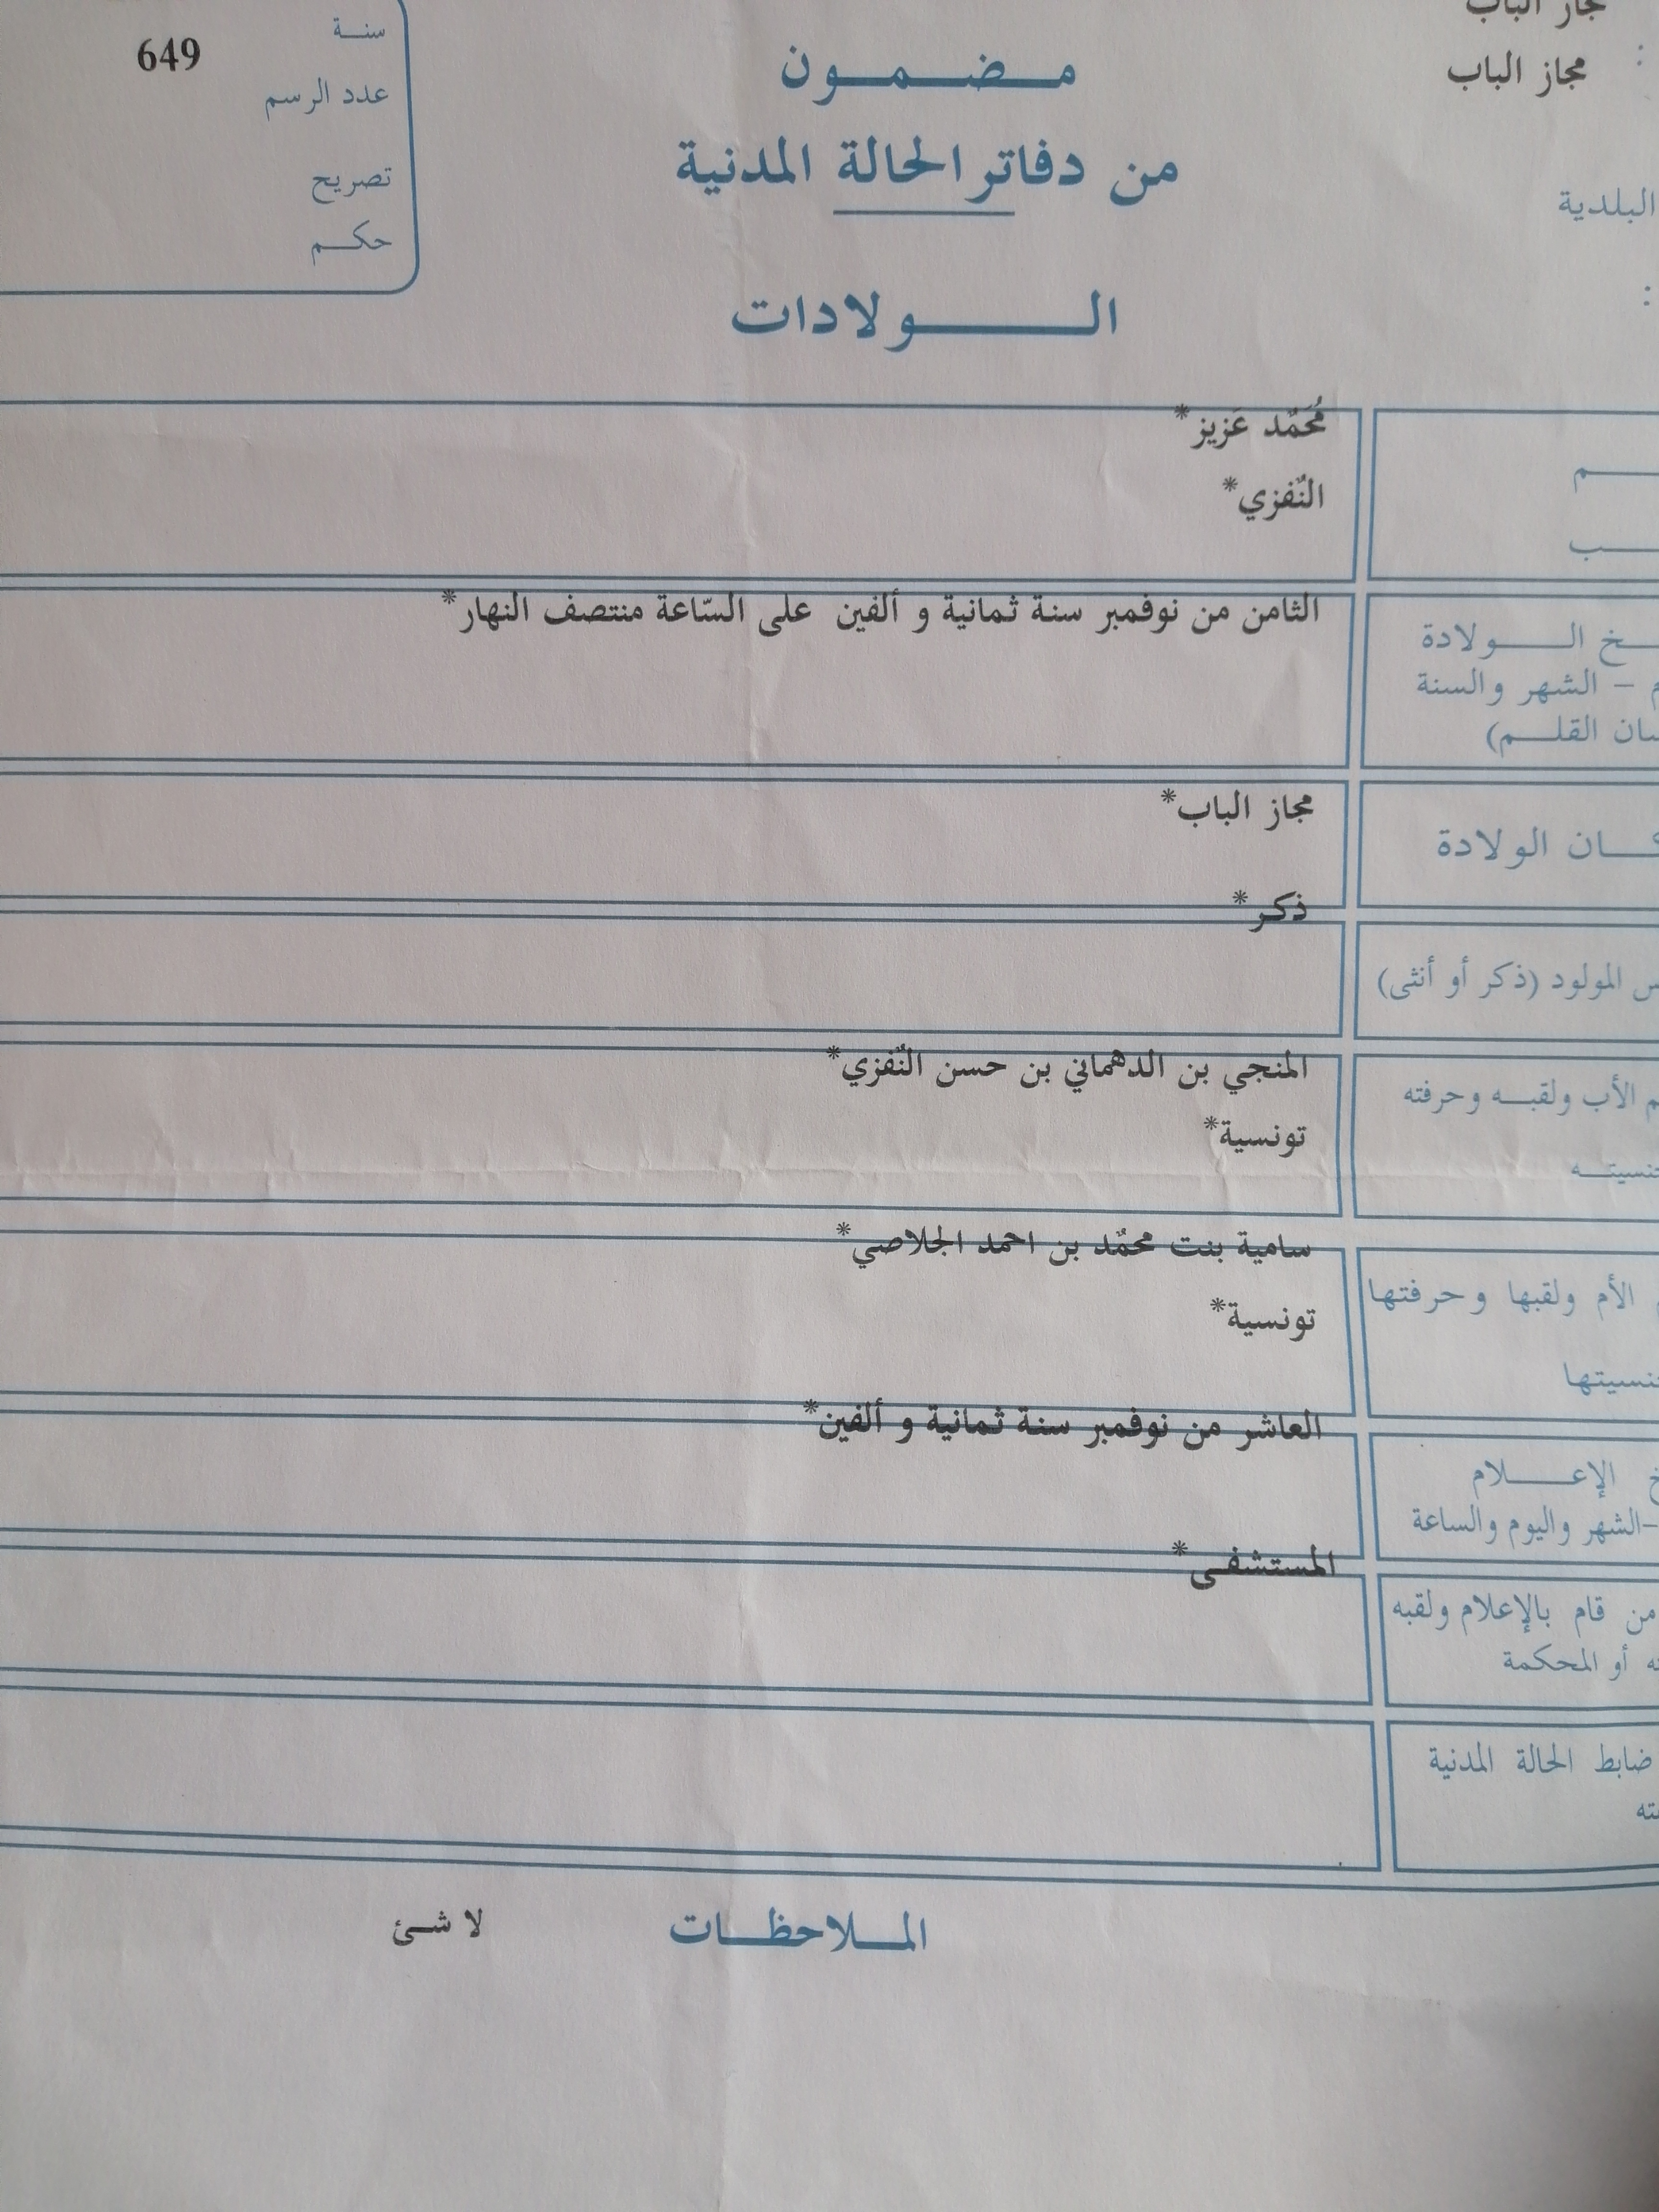 مجاز الباب
مجاز الباب
البلدية
سنة
649
عدد الرسم
تصريح
حكم
مضمون
من دفاتر الحالة المدنية
الولادات
مُحَمَّد عَزيز*
النّفزي*
الثامن من نوفمبر سنة ثمانية و ألفين على السّاعة منتصف النهار*
الولادة
– الشهر والسنة
القلم)
مجاز الباب*
الولادة
ذكر*
المولود (ذكر أو أنثى)
المنجي بن الدهماني بن حسن النّفزي*
الأب ولقبه وحرفته
تونسية*
سامية بنت محمّد بن احمد الجلاصي*
الأم ولقبها وحرفتها
تونسية*
العاشر من نوفمبر سنة ثمانية و ألفين*
الإعلام
-الشهر واليوم والساعة
المستشفى*
من قام بالإعلام ولقبه
أو المحكمة
ضابط الحالة المدنية
الملاحظات لا شئ